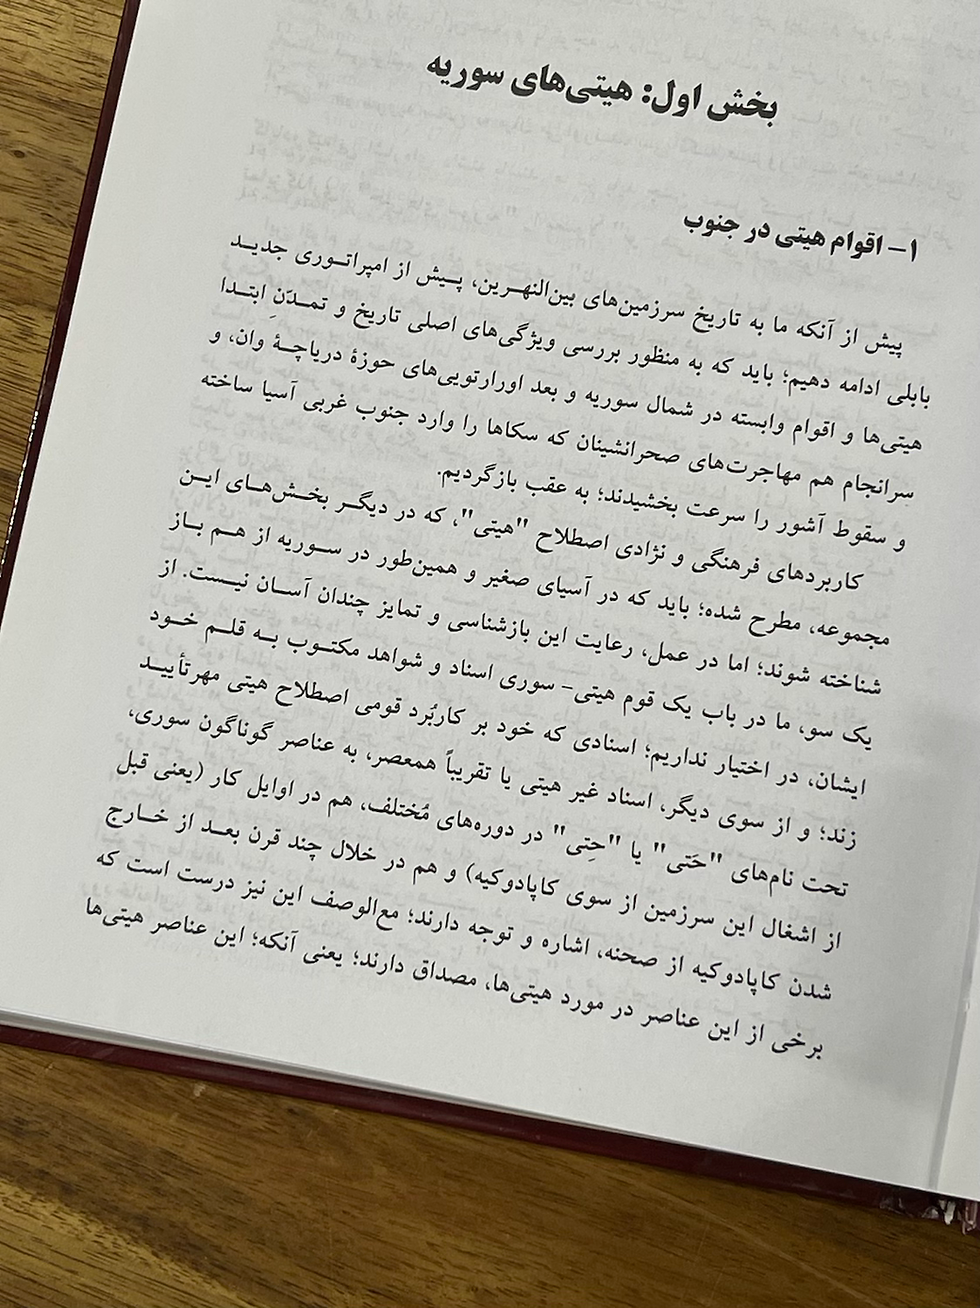 بخش اول: هیتی‌های سوریه
۱– اقوام هیتی در جنوب
پیش از آنکه ما به تاریخ سرزمین‌های بین‌النهرین، پیش از امپراتوری جدید
بابلی ادامه دهیم؛ باید که به منظور بررسی ویژگی‌های اصلی تاریخ و تمدّنِ ابتدا
هیتی‌ها و اقوام وابسته در شمال سوریه و بعد اورارتویی‌های حوزهٔ دریاچهٔ وان، و
سرانجام هم مهاجرت‌های صحرانشینان که سکاها را وارد جنوب غربی آسیا ساخته
و سقوط آشور را سرعت بخشیدند؛ به عقب بازگردیم.
کاربردهای فرهنگی و نژادی اصطلاح "هیتی"، که در دیگر بخش‌های این
مجموعه، مطرح شده؛ باید که در آسیای صغیر و همین‌طور در سوریه از هم باز
شناخته شوند؛ اما در عمل، رعایت این بازشناسی و تمایز چندان آسان نیست. از
یک سو، ما در باب یک قوم هیتی– سوری اسناد و شواهد مکتوب به قلم خود
ایشان، در اختیار نداریم؛ اسنادی که خود بر کاربُرد قومی اصطلاح هیتی مهرتأیید
زند؛ و از سوی دیگر، اسناد غیر هیتی یا تقریباً همعصر، به عناصر گوناگون سوری،
تحت نام‌های "حَتی" یا "حِتی" در دوره‌های مُختلف، هم در اوایل کار (یعنی قبل
از اشغال این سرزمین از سوی کاپادوکیه) و هم در خلال چند قرن بعد از خارج
شدن کاپادوکیه از صحنه، اشاره و توجه دارند؛ مع‌الوصف این نیز درست است که
برخی از این عناصر در مورد هیتی‌ها، مصداق دارند؛ یعنی آنکه؛ این عناصر هیتی‌ها